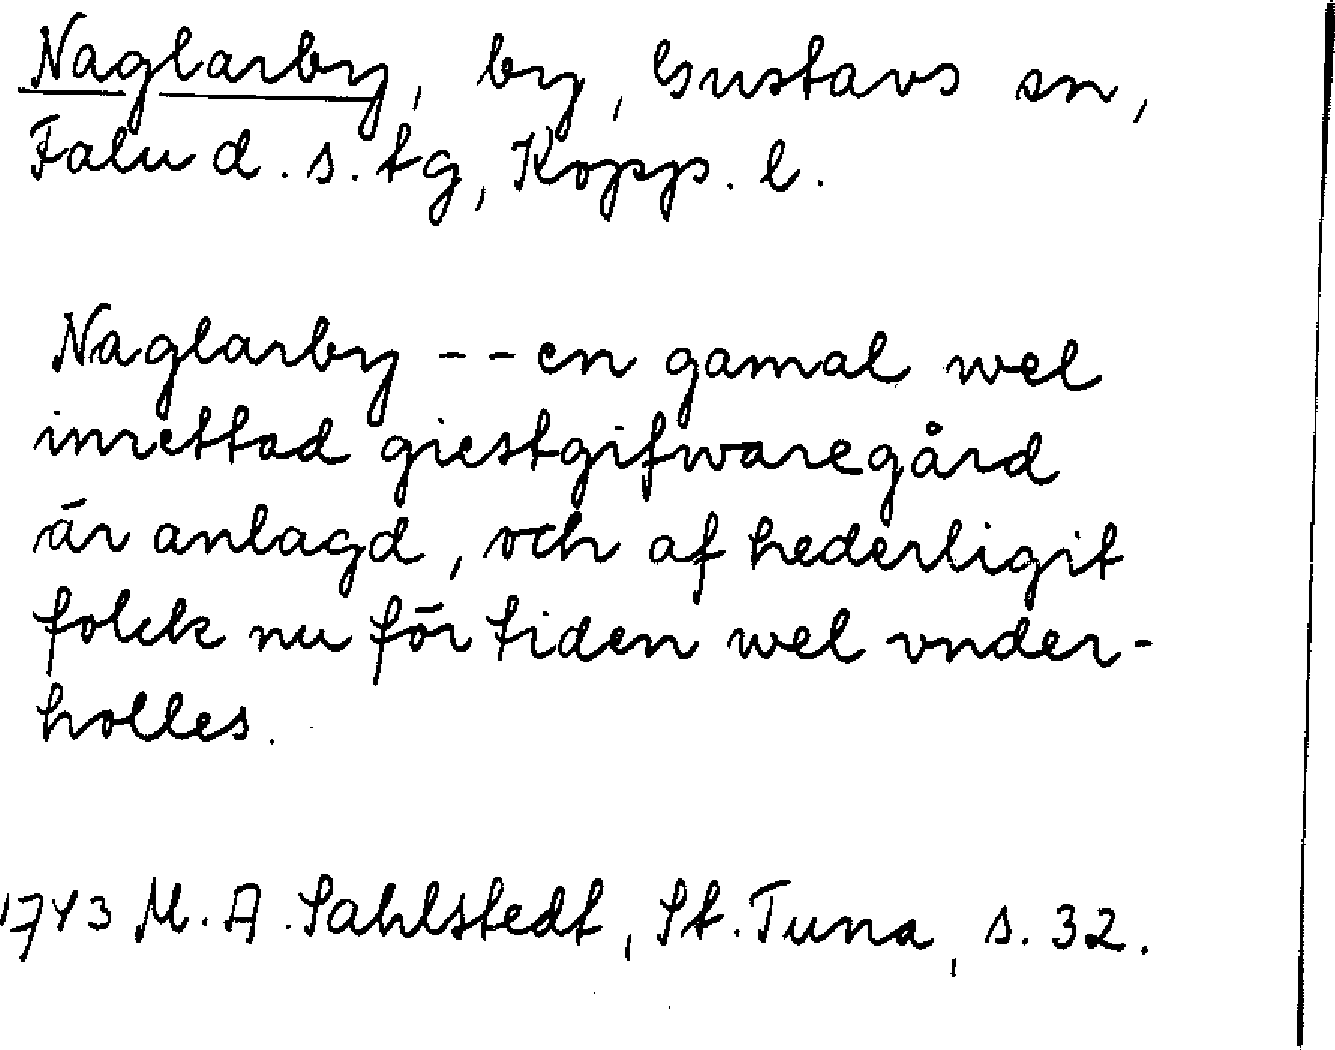 Naglarby, by, Gustavs sn,
Falu d. s. tg, Kopp. l.
Naglarby -- en gamal wel
inrettad giestgifwaregård
är anlagd, och af hederligit
folck nu för tiden wel vnder-
holles.
1743 M. A. Sahlstedt, St. Tuna, s. 32.